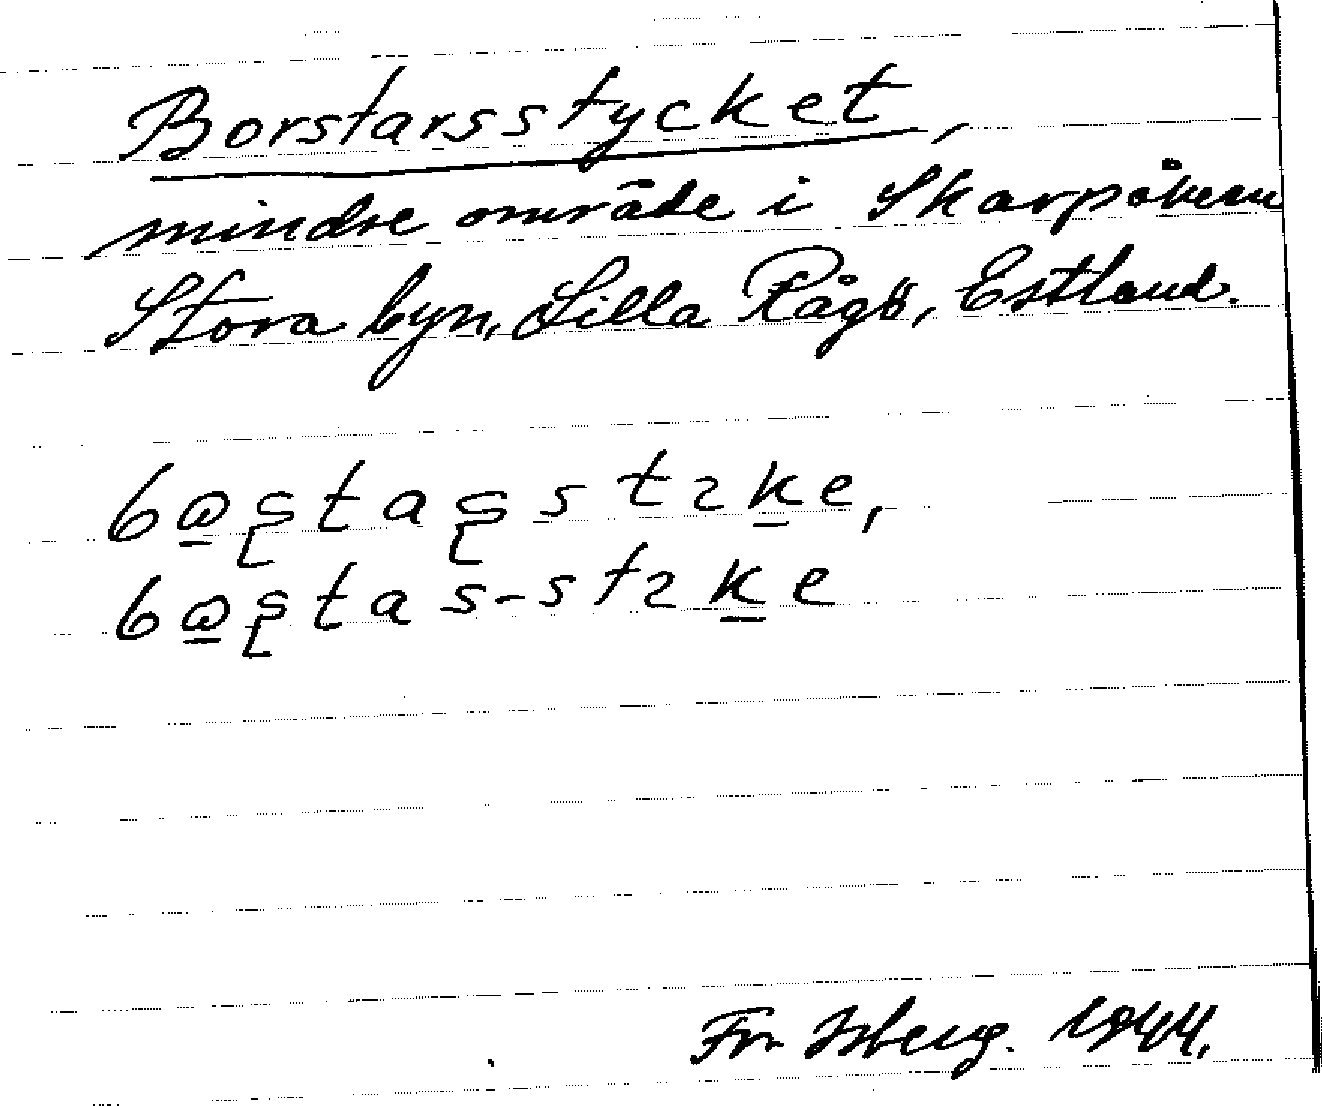 Borstarsstycket,
mindre område i Skarpåkern
Stora byn, Lilla Rågö, Estland.
bꞷ̲ʂtaʂstɿk̲e,
bꞷ̲ʂtas-stɿk̲e
Fr. Isberg. 1944.